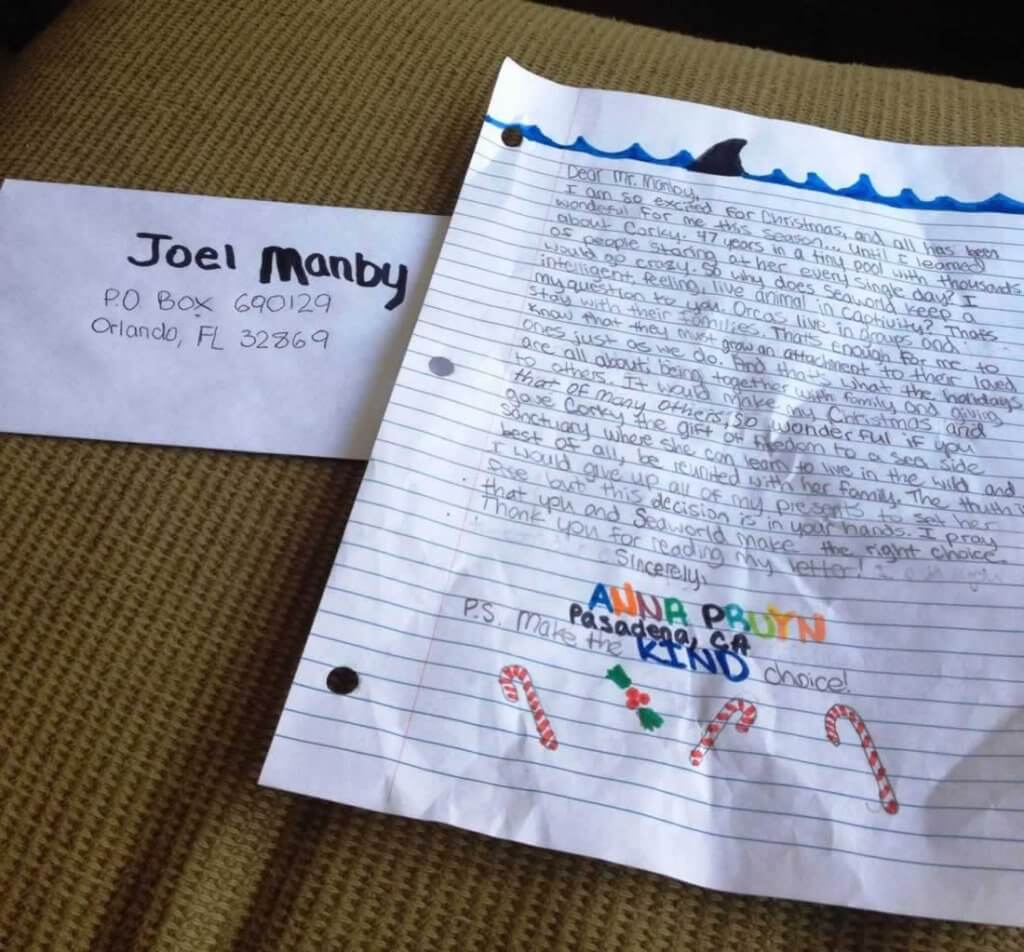 Joel Manby
P.O Box 690129
Orlando, FL 32869
Dear Mr. Manby,
I am so excited for Christmas, and all has been
wonderful for me this season... Until I learned
about Corky. 47 years in a tiny pool with thousands
of people staring at her every single day? I
would go crazy. So why does seaworld keep a
intelligent, feeling, live animal in captivity? Thats
my question to you. Orcas live in groups and
stay with their families. Thats enough for me to
know that they must grow an attachment to their loved
ones just as we do. And thats what the holidays
are all about: being together with family and giving
to others. It would make my Christmas and
that of many others, so wonderful if you
gave Corky the gift of freedom to a sea side
sanctuary where she can learn to live in the wild and
best of all, be reunited with her family. The truth is
I would give up all of my presents to set her
free but this decision is in your hands. I pray
that you and Seaworld make the right choice.
Thank you for reading my letter!
Sincerely,
ANNA PRUYN
Pasadena, CA
P.S. Make the KIND choice!